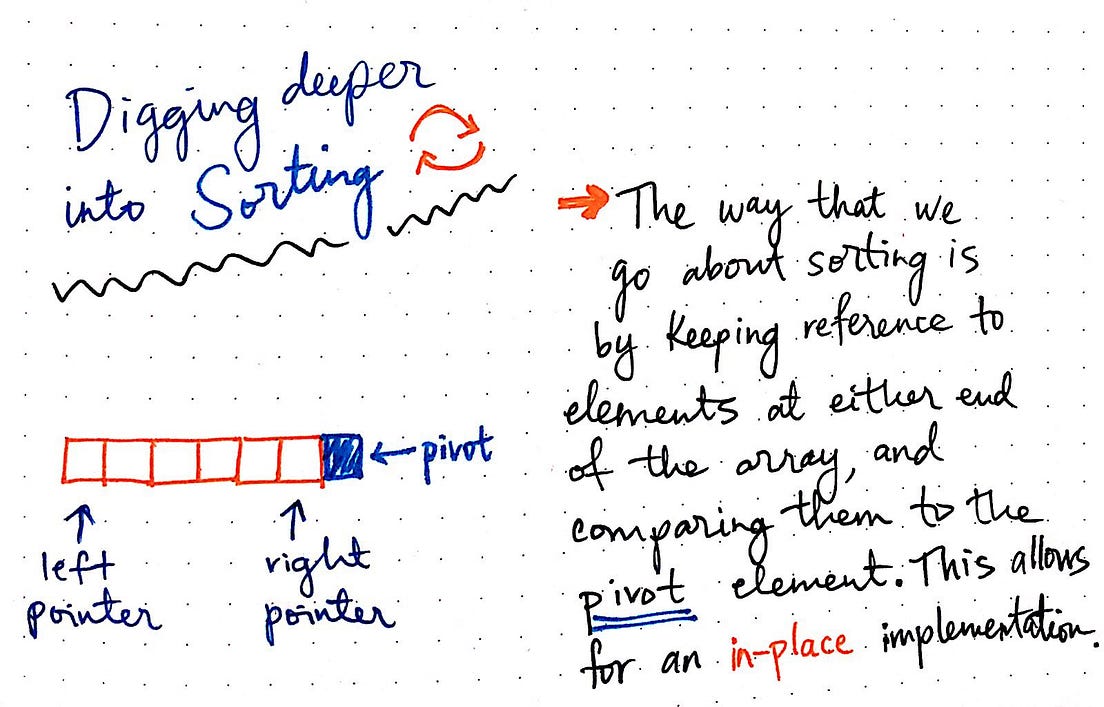 Digging deeper
into Sorting
→ The way that we
go about sorting is
by keeping reference to
elements at either end
of the array, and
comparing them to the
pivot element. This allows
for an in-place implementation.
← pivot
↑
left
pointer
↑
right
pointer